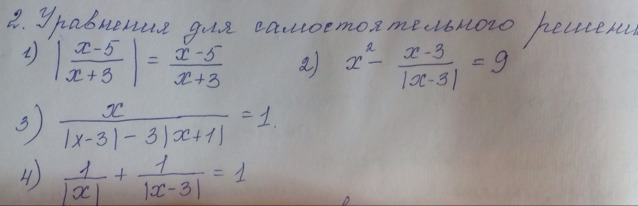 2. Уравнения для самостоятельного решени
1) |(x-5)/(x+3)| = (x-5)/(x+3) 2) x² - (x-3)/|x-3| = 9
3) x/(|x-3| - 3|x+1|) = 1.
4) 1/|x| + 1/|x-3| = 1